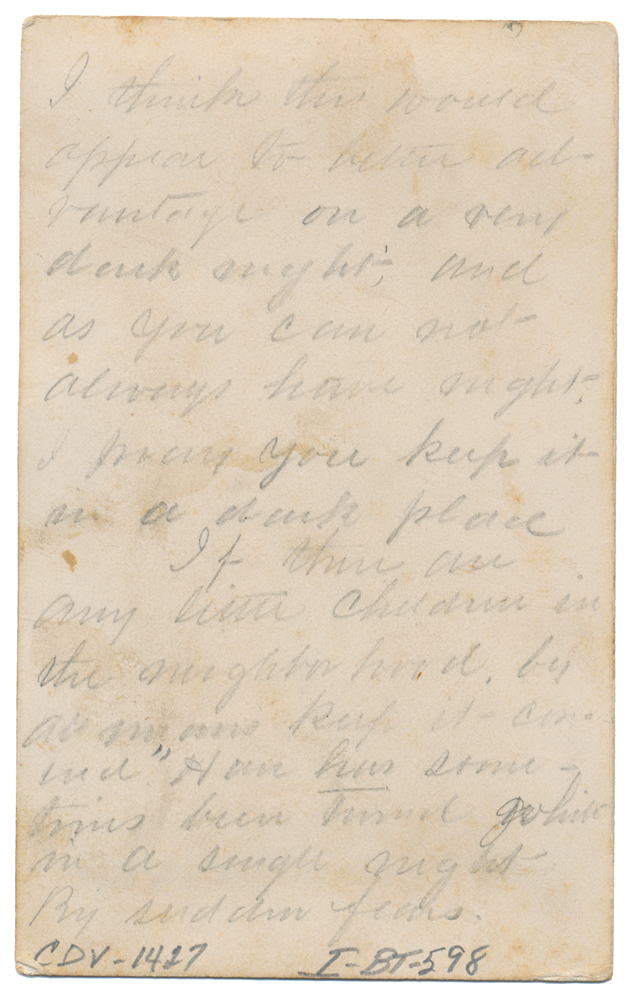 I think this would
appear to better ad-
vantage on a very
dark night, and
as you can not
always have night,
I pray you keep it
in a dark place
If there are
any little children in
the neighborhood, by
all means keep it cov-
erd" Hair has some-
times been turned white
in a single night
By sudden fears.
CDV-1427 I-BT-598